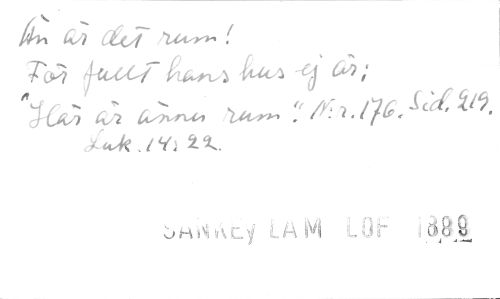 Än är det rum!
För fullt hans hus ej är;
"Här är ännu rum". N:r. 176. Sid. 219.
Luk. 14:22.
SANKEY LAM LOF 1889